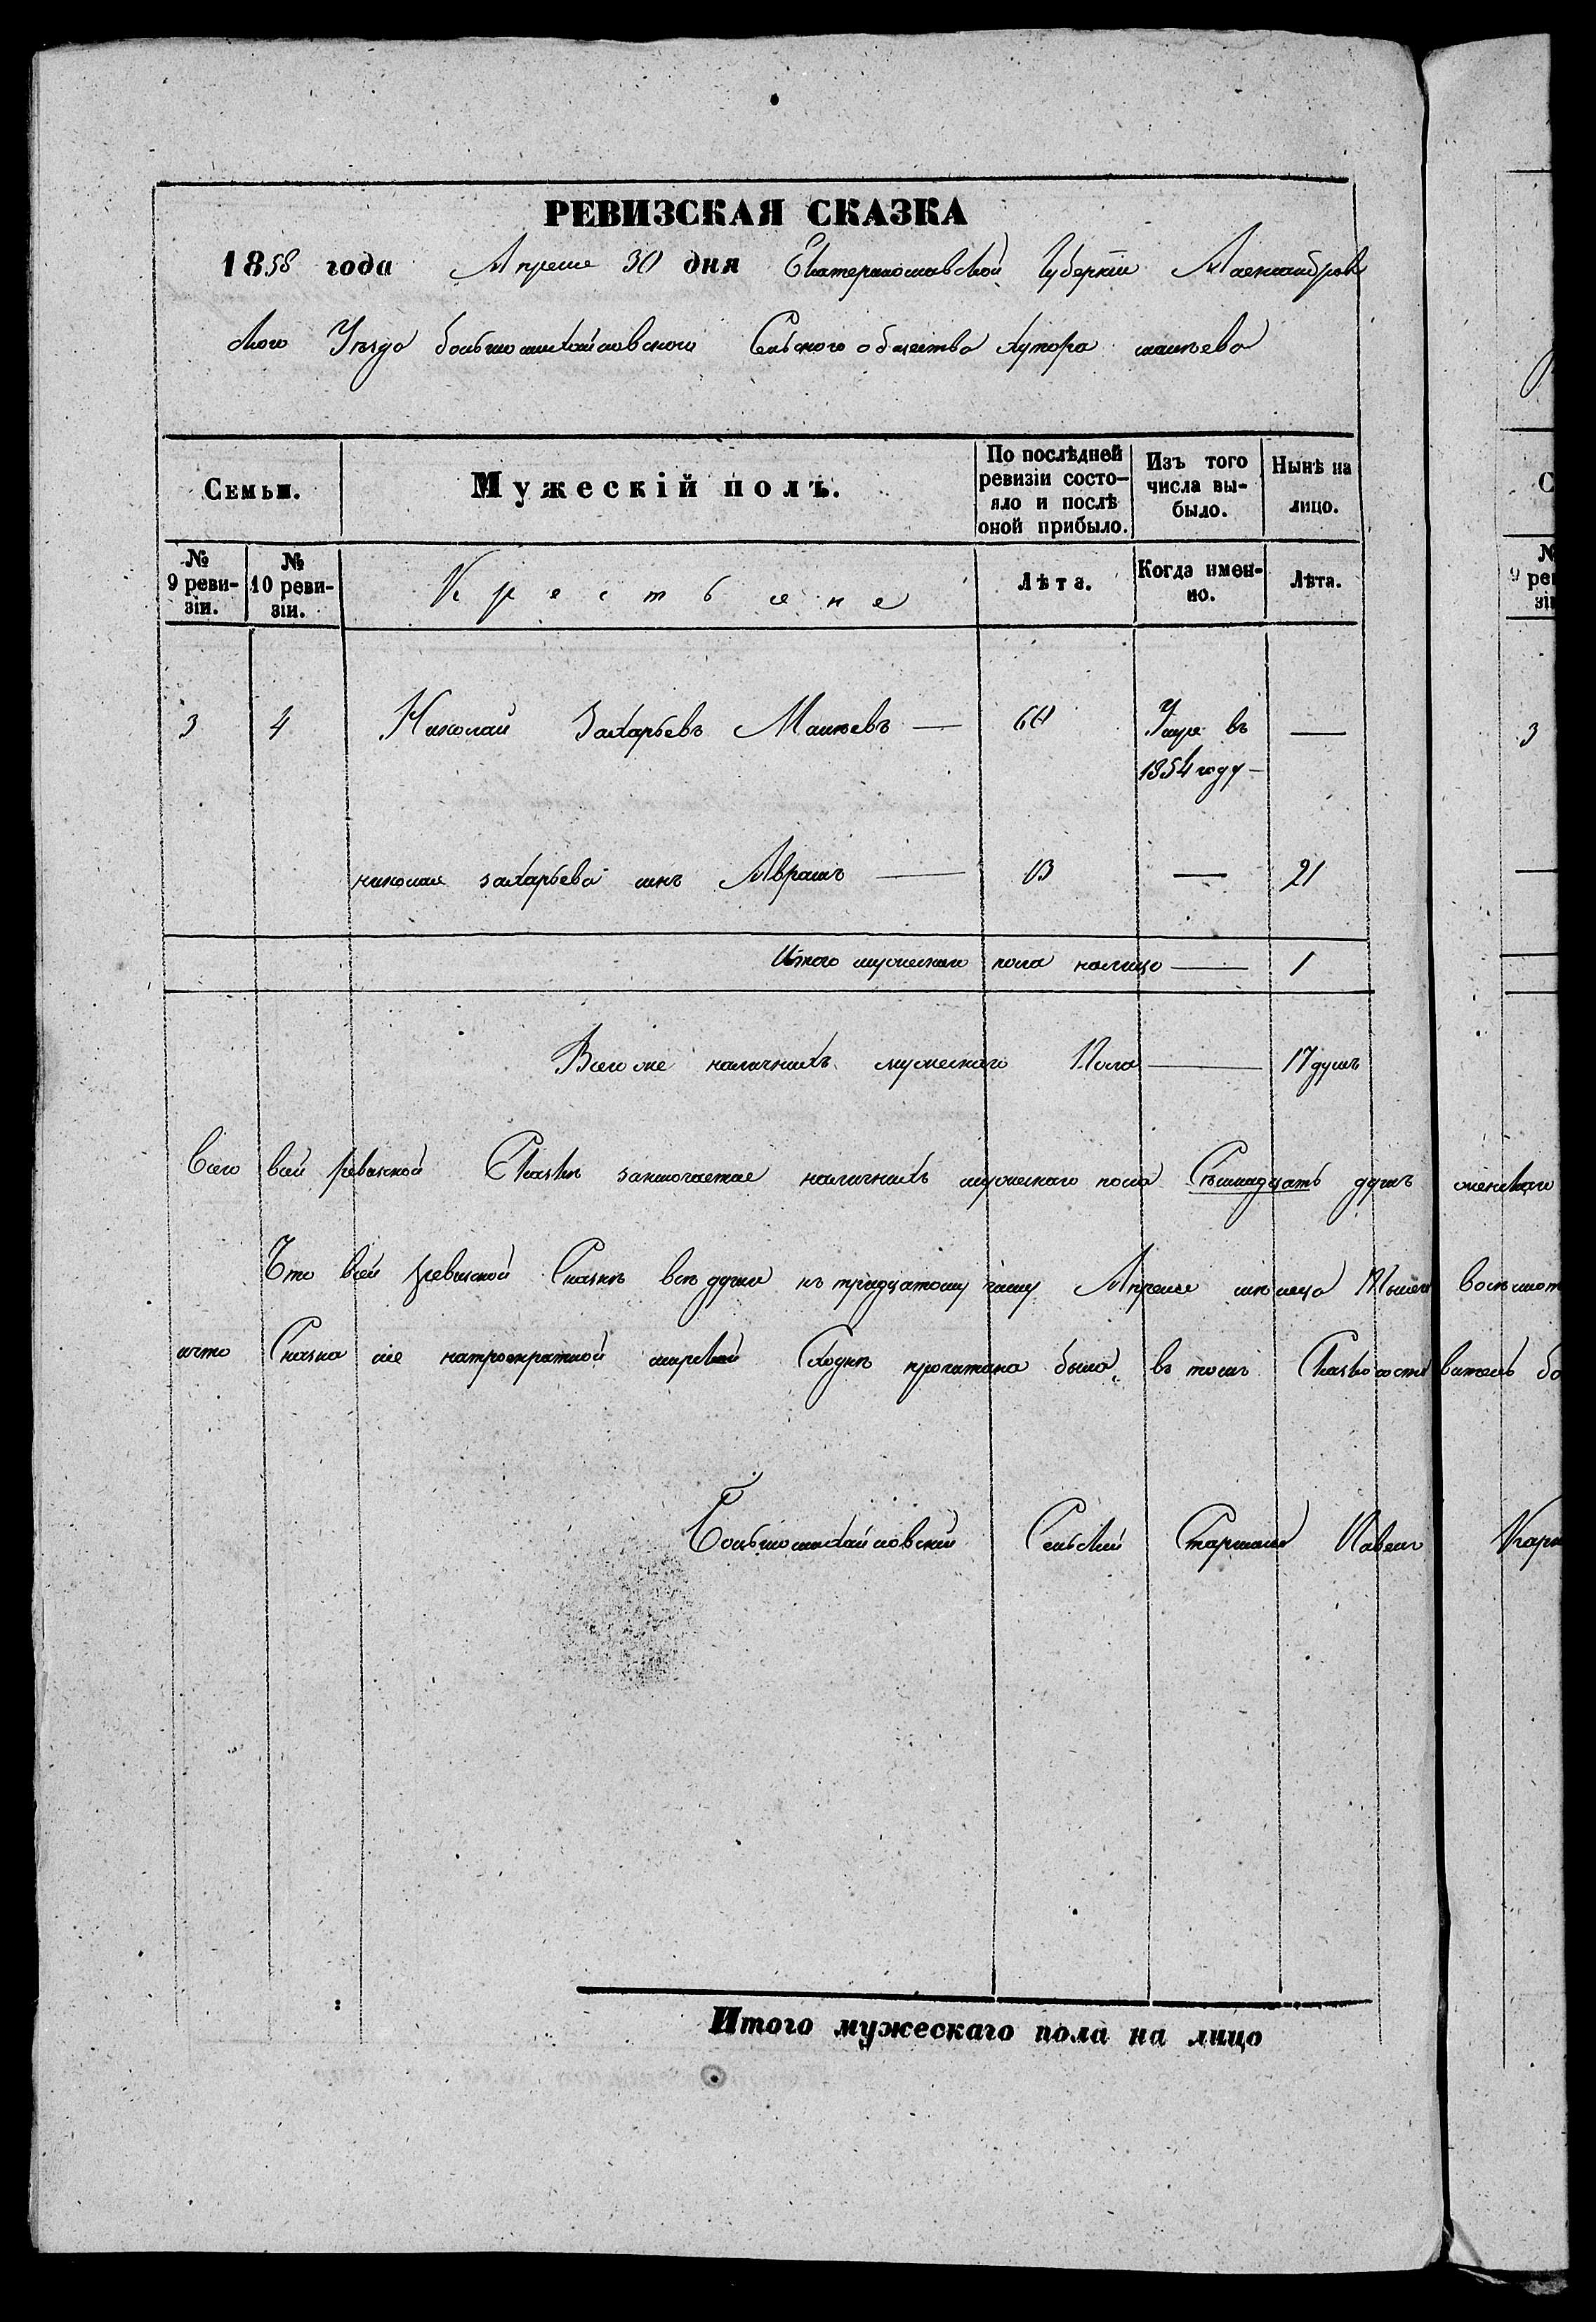 РЕВИЗСКАЯ СКАЗКА
1858 года Апреля 30 дня Екатеринославской Губернии Александров
ского Уезда большомихайловского Сельского общества хутора
Семьи.
Мужескій полъ.
По послѣдней ревизіи состо-
яло и послѣ оной прибыло.
Изъ того числа вы-
было.
Нынѣ на лицо.
№ 9 реви-
зіи.
№ 10 реви-
зіи.
Крестьяне
Лѣта.
Когда имен-
но.
Лѣта.
3 4 Николай Захарьевъ — Умре въ —
1854 году —
николая захарьева сынъ Абрамъ — 13 — 21
Итого мужескаго пола налицо — 1
Всего же наличныхъ мужескаго Пола — 17 душъ
Всего всей ревизской Сказкѣ заключается наличныхъ мужескаго пола Сѣмнадцать душъ женскаго
Что всей ревизской Сказкѣ всѣ души къ тридцатому числу Апреля мѣсяца
ичто Сказка сия мирской Сходкѣ прочитана была, въ томъ
Большомихайловский Сельский Старшина Павелъ
Итого мужескаго пола на лицо
С
№
9 ре
зі
3